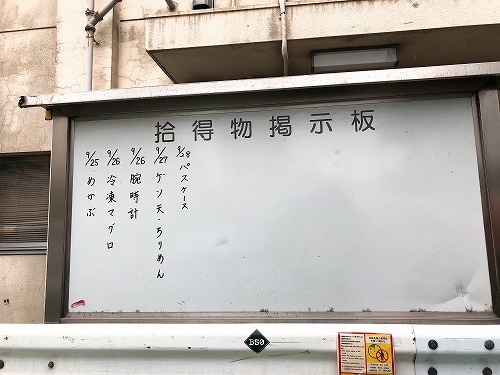 拾得物掲示板
9/25 めかぶ
9/26 冷凍マグロ
9/26 腕時計
9/27 ゲソ天・ちりめん
9/28 パスケース
B50